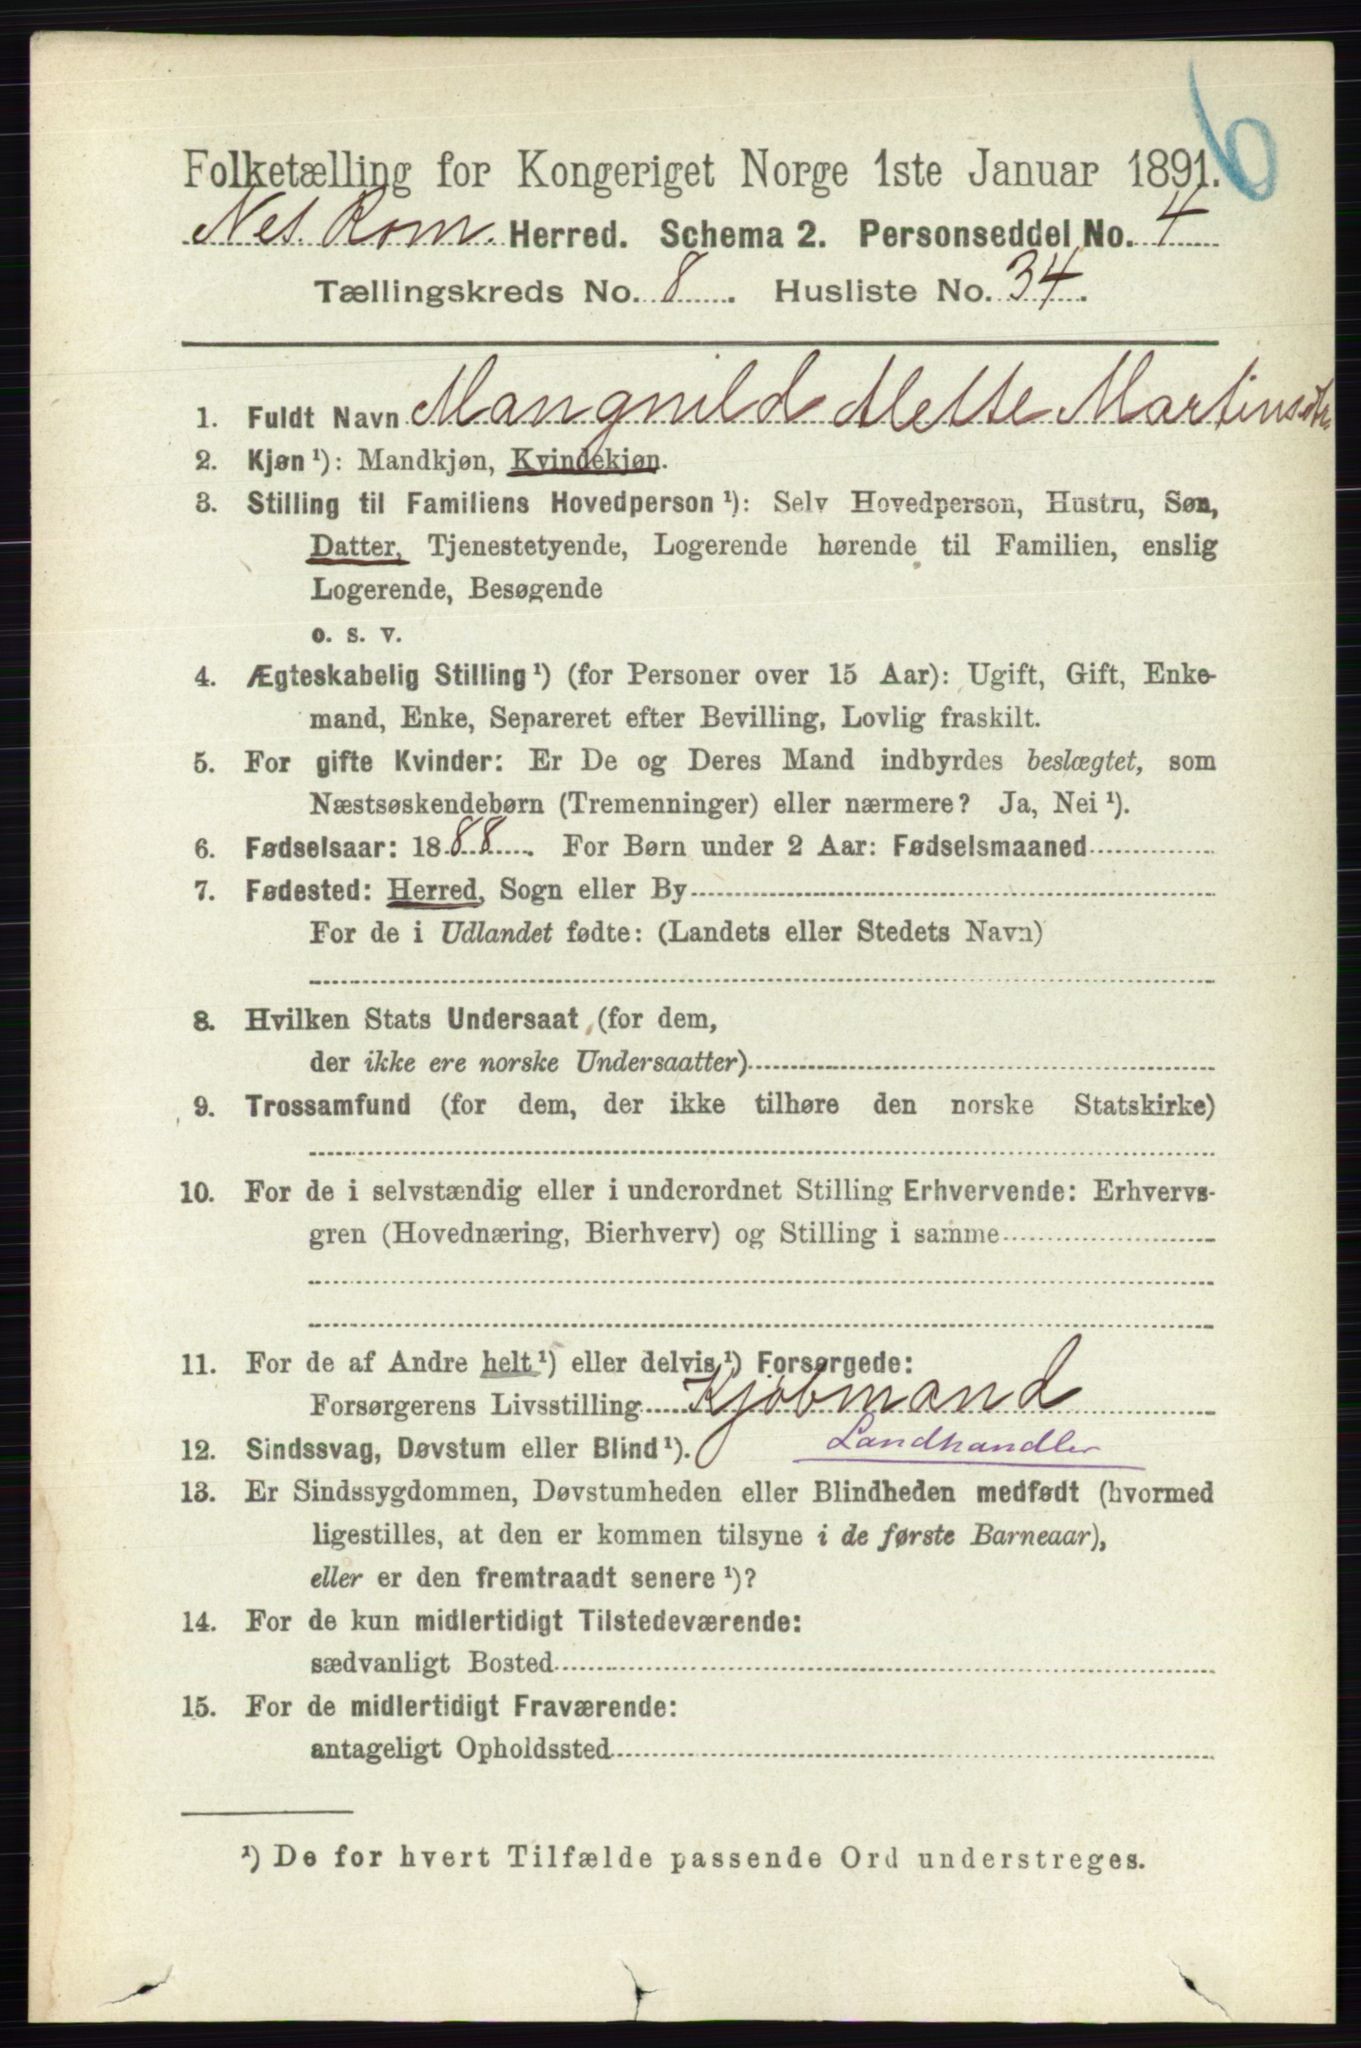 6
Folketælling for Kongeriget Norge 1ste Januar 1891.
Nes. Rom. Herred. Schema 2. Personseddel No. 4
Tællingskreds No. 8. Husliste No. 34.
1. Fuldt Navn Mangnild Mette Martinsdtr.
2. Kjøn ¹): Mandkjøn, Kvindekjøn.
3. Stilling til Familiens Hovedperson ¹): Selv Hovedperson, Hustru, Søn,
Datter, Tjenestetyende, Logerende hørende til Familien, enslig
Logerende, Besøgende
o. s. v.
4. Ægteskabelig Stilling ¹) (for Personer over 15 Aar): Ugift, Gift, Enke-
mand, Enke, Separeret efter Bevilling, Lovlig fraskilt.
5. For gifte Kvinder: Er De og Deres Mand indbyrdes beslægtet, som
Næstsøskendebørn (Tremenninger) eller nærmere? Ja, Nei ¹).
6. Fødselsaar: 1888. For Børn under 2 Aar: Fødselsmaaned
7. Fødested: Herred, Sogn eller By
For de i Udlandet fødte: (Landets eller Stedets Navn)
8. Hvilken Stats Undersaat (for dem,
der ikke ere norske Undersaatter)
9. Trossamfund (for dem, der ikke tilhøre den norske Statskirke)
10. For de i selvstændig eller i underordnet Stilling Erhvervende: Erhvervs-
gren (Hovednæring, Bierhverv) og Stilling i samme
11. For de af Andre helt ¹) eller delvis ¹) Forsørgede:
Forsørgerens Livsstilling Kjøbmand
12. Sindssvag, Døvstum eller Blind ¹). Landhandler
13. Er Sindssygdommen, Døvstumheden eller Blindheden medfødt (hvormed
ligestilles, at den er kommen tilsyne i de første Barneaar),
eller er den fremtraadt senere ¹)?
14. For de kun midlertidigt Tilstedeværende:
sædvanligt Bosted
15. For de midlertidigt Fraværende:
antageligt Opholdssted
¹) De for hvert Tilfælde passende Ord understreges.